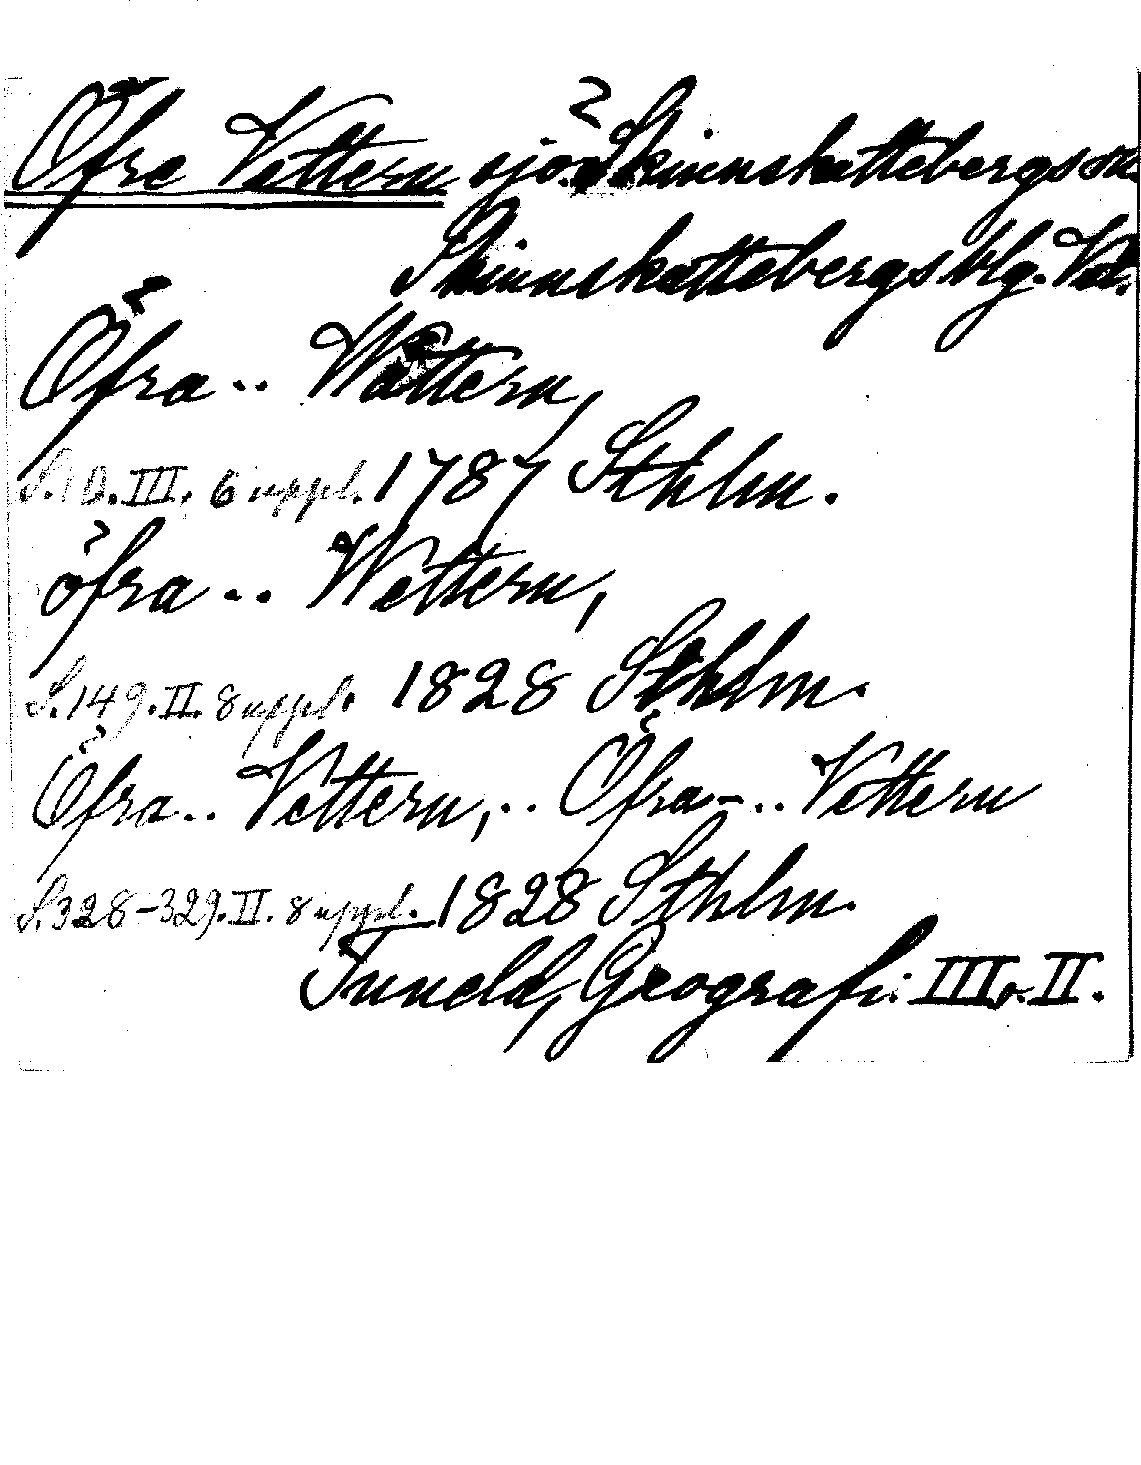 Öfre Vettern sjö. Skinnskattebergs sn.
Skinnskattebergs blg. Vstm.
Öfra .. Wättern,
S.10.III. 6 uppl. 1787 Sthlm.
öfra .. Wettern,
S.149.II. 8 uppl. 1828 Sthlm.
Öfra .. Vettern, .. Öfra- .. Vettern
S.328-329.II. 8 uppl. 1828 Sthlm.
Tuneld, Geografi. III o. II.